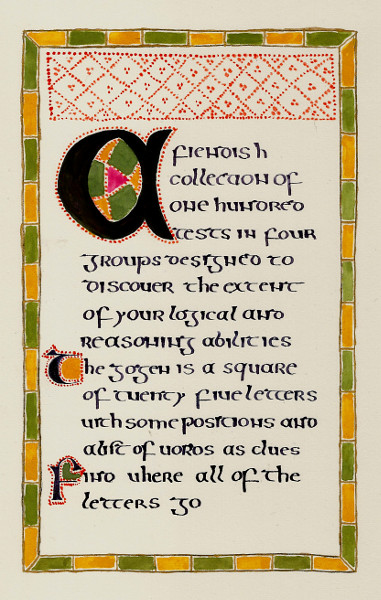 A fiendish
collection of
one hundred
tests in four
groups designed to
discover the extent
of your logical and
reasoning abilities
The gogen is a square
of twenty five letters
with some positions and
a list of words as clues
Find where all of the
letters go